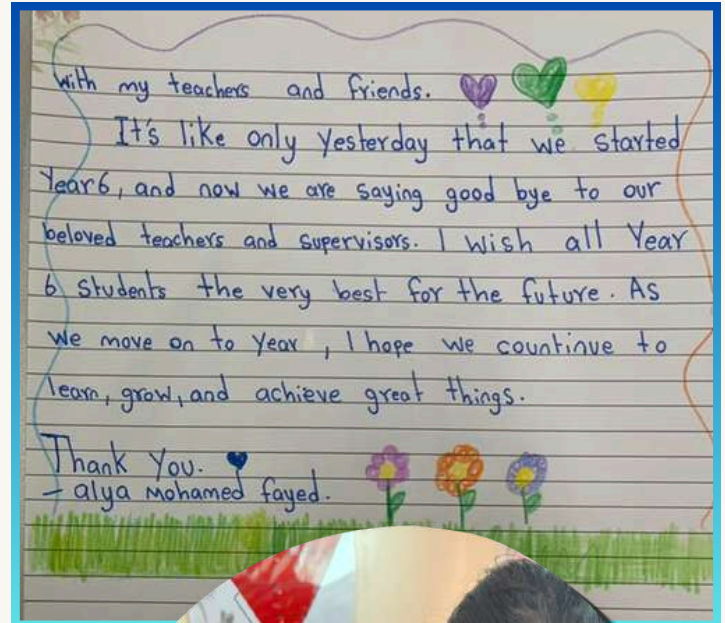 with my teachers and friends.
It's like only yesterday that we started
Year6, and now we are saying good bye to our
beloved teachers and supervisors. I wish all Year
6 students the very best for the future. As
we move on to year , I hope we countinue to
learn, grow, and achieve great things.
Thank You.
- alya Mohamed fayed.